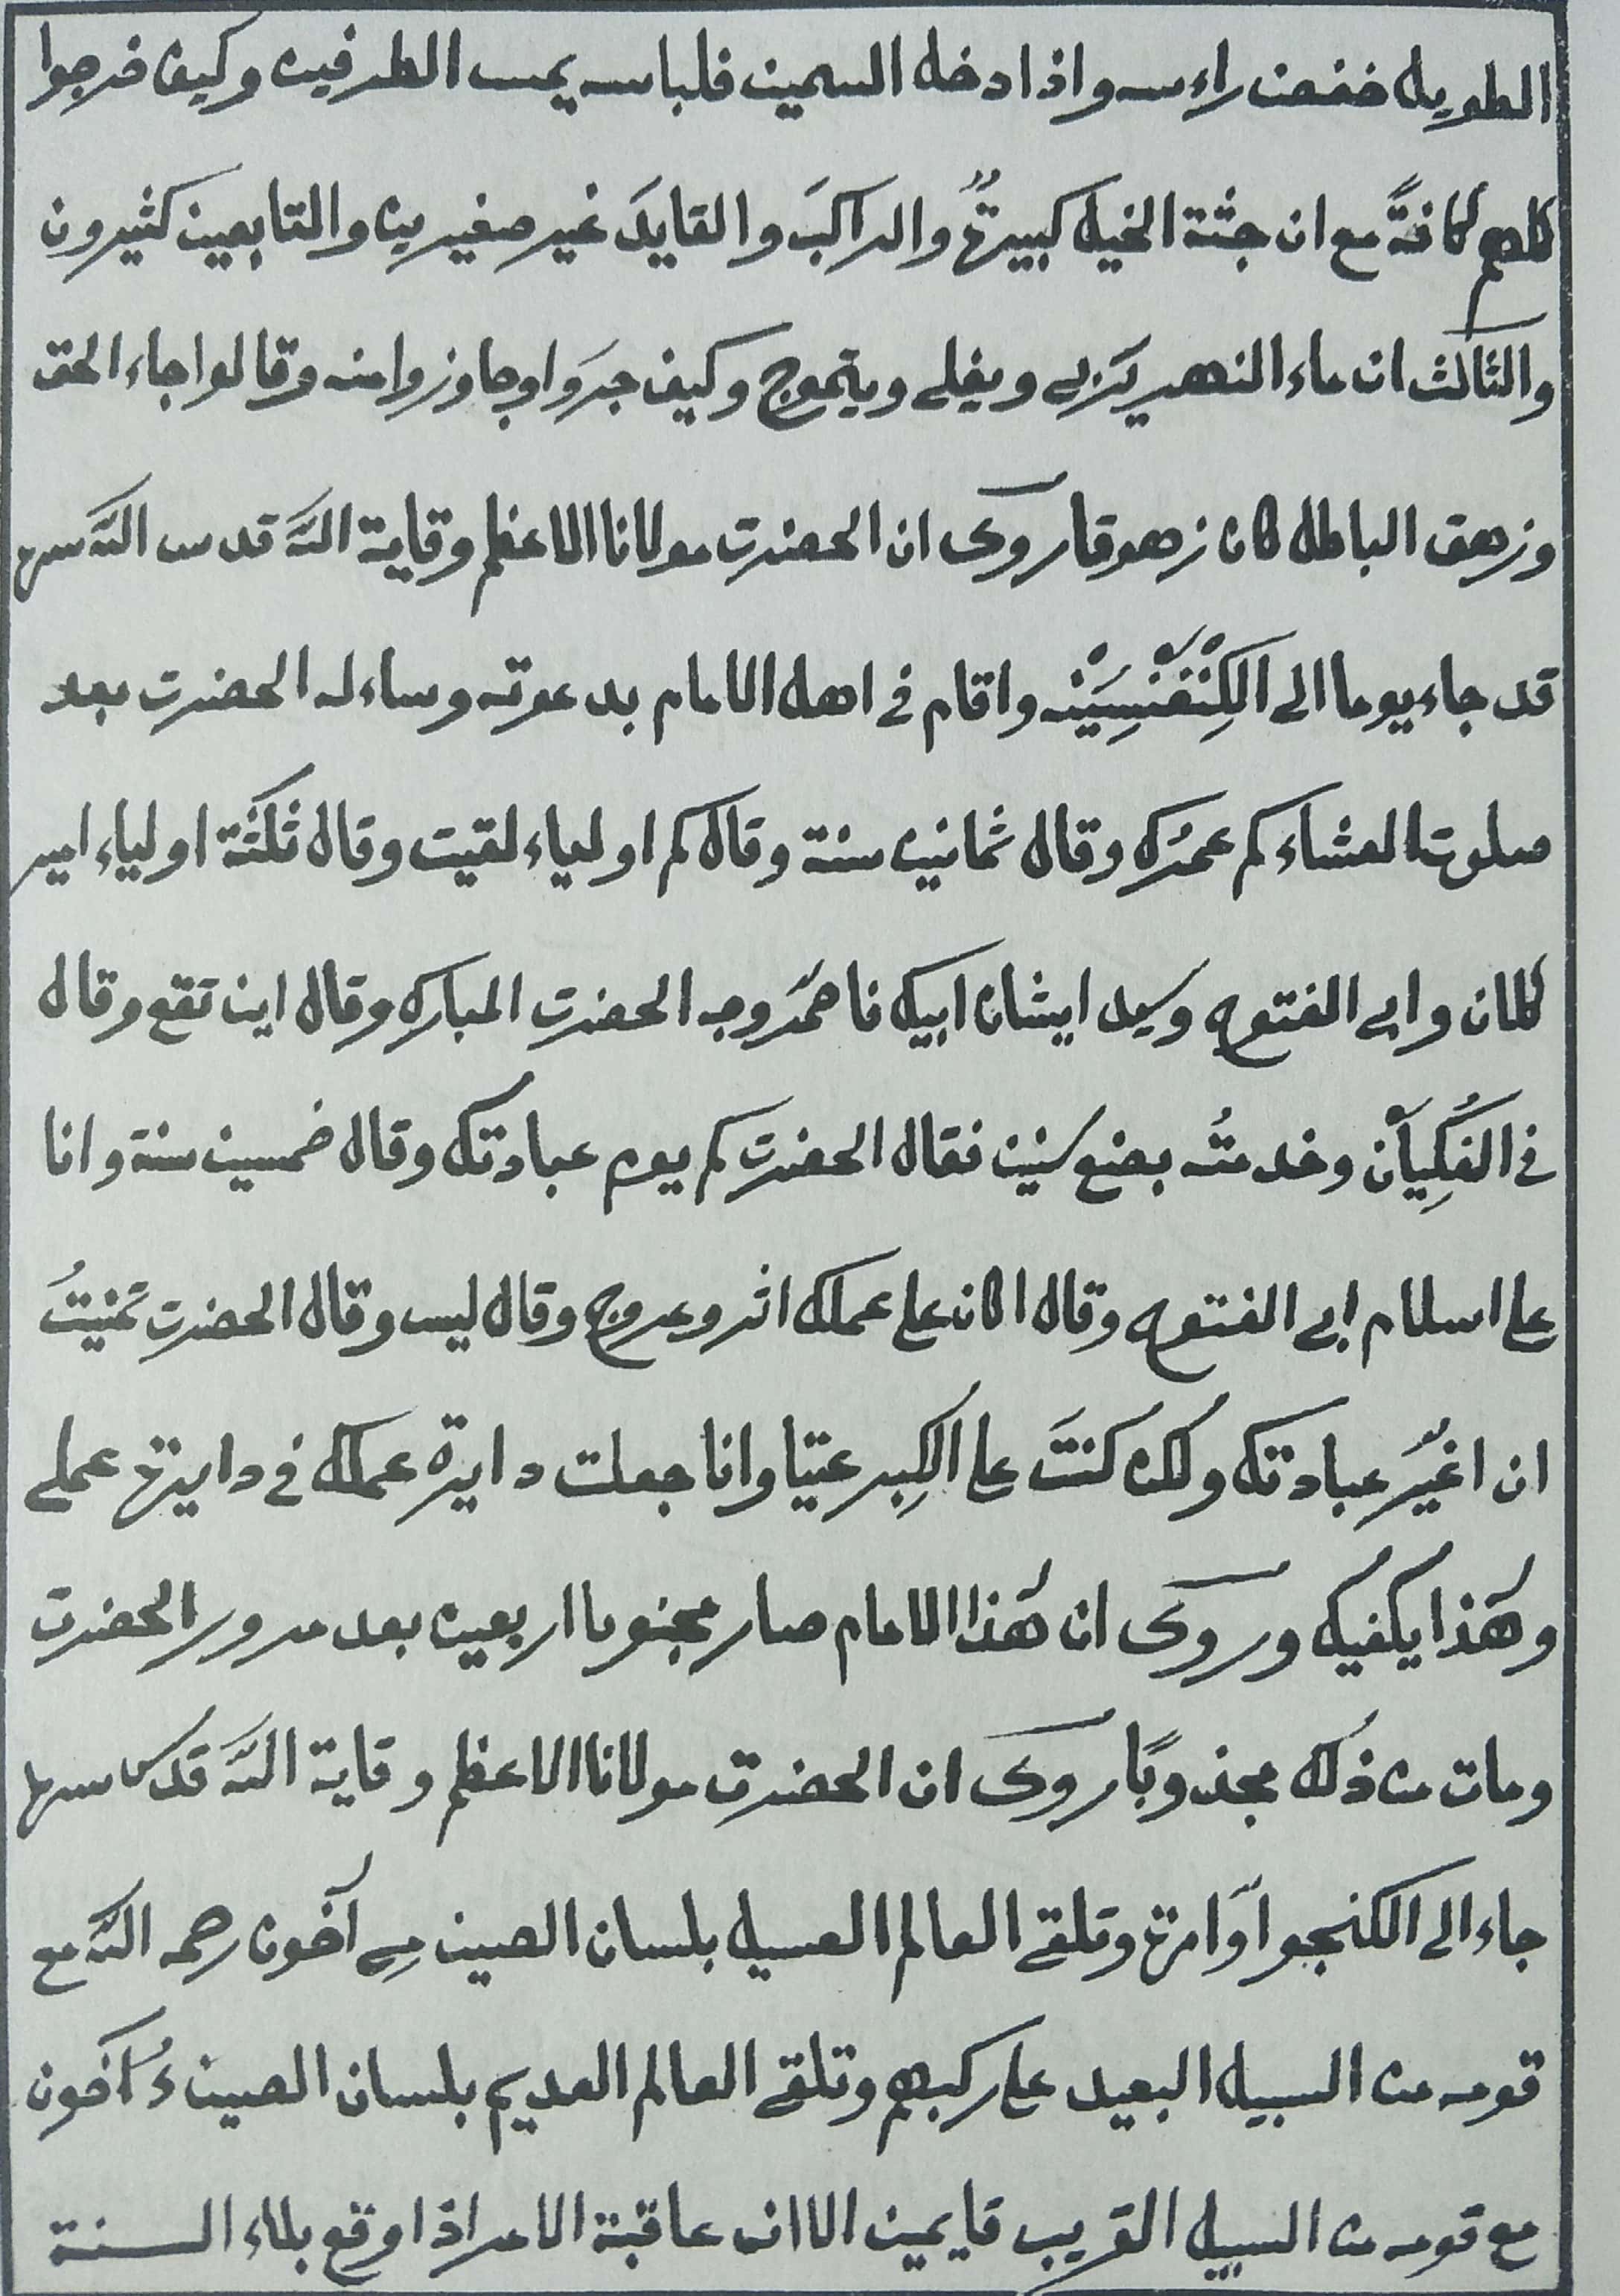 الطويل خفض راءسه واذا دخل السمين فلباسه يمس الطرفين وكيف خرجوا
كلهم كافةً مع ان جثة الخيل كبيرةٌ والراكبَ والقايدَ غير صغيرين والتابعين كثيرون
والثالث ان ماء النهر يَرْبى ويغلى ويتموج وكيف جرَوا وجاوزوا منه وقالوا جاء الحق
وزهق الباطل كان زهوقا روى ان الحضرت مولانا الاعظم وقاية الله قدس الله سره
قد جاء يوما الى الكِنْفْسِيَنْ واقام فى اهل الامام بدعوته وساءله الحضرت بعد
صلوت العشاء كم عمرك وقال ثمانين سنة وقال كم اولياء لقيت وقال ثلثة اولياء امير
كلان وابى الفتوح وسيد ايشان ابيك ناحمّر وجه الحضرت المبارك وقال اين تقع وقال
فى الفُكِيآن وخدمتُه بضع سنين فقال الحضرت كم يوم عبادتك وقال خمسين سنة وانا
على اسلام ابى الفتوح وقال اكان على عملك اثر وعروج وقال ليس وقال الحضرت تمنيتُ
ان اغيّر عبادتك ولكن كنتَ على الكِبر عتيا وانا جعلت دايرة عملك فى دايرة عملى
وهٰذا يكفيك وروى ان هٰذا الامام صار مجنوبا اربعين بعد مرور الحضرت
ومات من ذٰلك مجذوبًا روى ان الحضرت مولانا الاعظم وقاية الله قدس سره
جاء الى الكنجو اوّا مرة وتلقى العالم العسيل بلسان الصين مِى آخون رحمه الله مع
قومه من السبيل البعيد على ركبهم وتلقى العالم العديم بلسان الصين آخون
مع قومه من السبيل القريب قايمين الا ان عاقبة الامر اذا وقع بلاء السنة